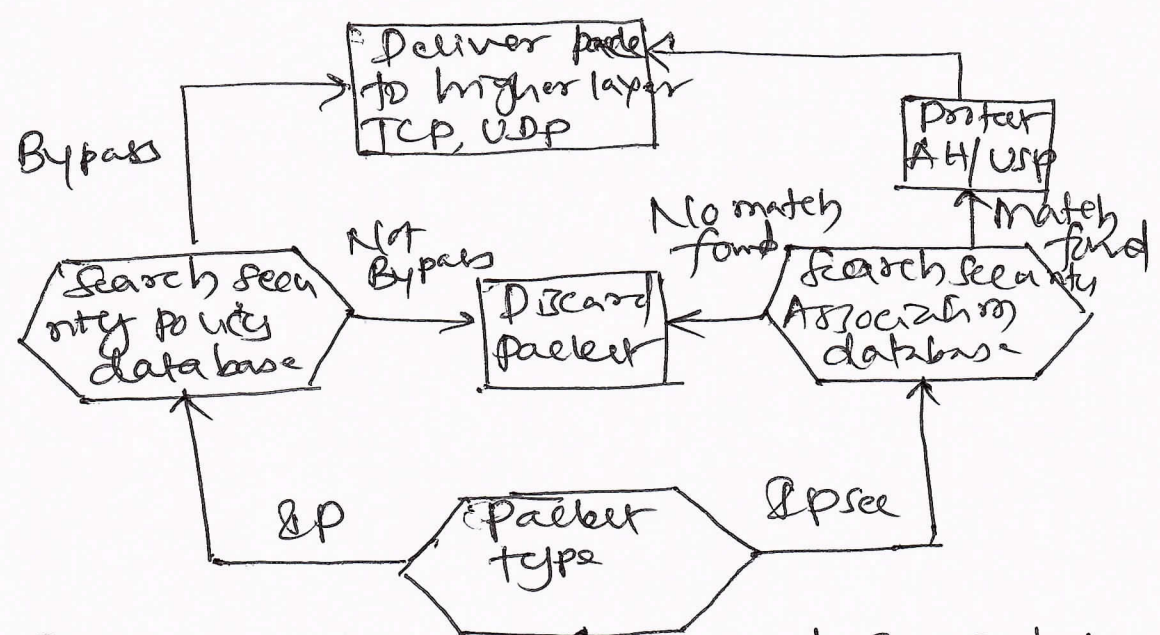 Deliver packe
to higher layer
TCP, UDP
Bypass
Protect
AH/USP
Not
Bypass
No match
found
Match
found
Search secu
rity policy
database
Discard
packet
Search security
Association
database
IP
Packet
type
IPsec